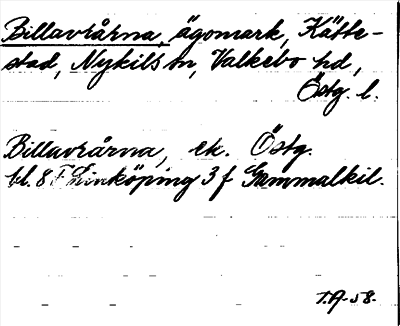 Billavrårna, ägomark, Kätte-
stad, Nykils sn, Valkebo hd,
Östg. l.
Billavrårna, ek. Östg.
bl. 8 F Linköping 3 f Gammalkil.
T.A. 58.